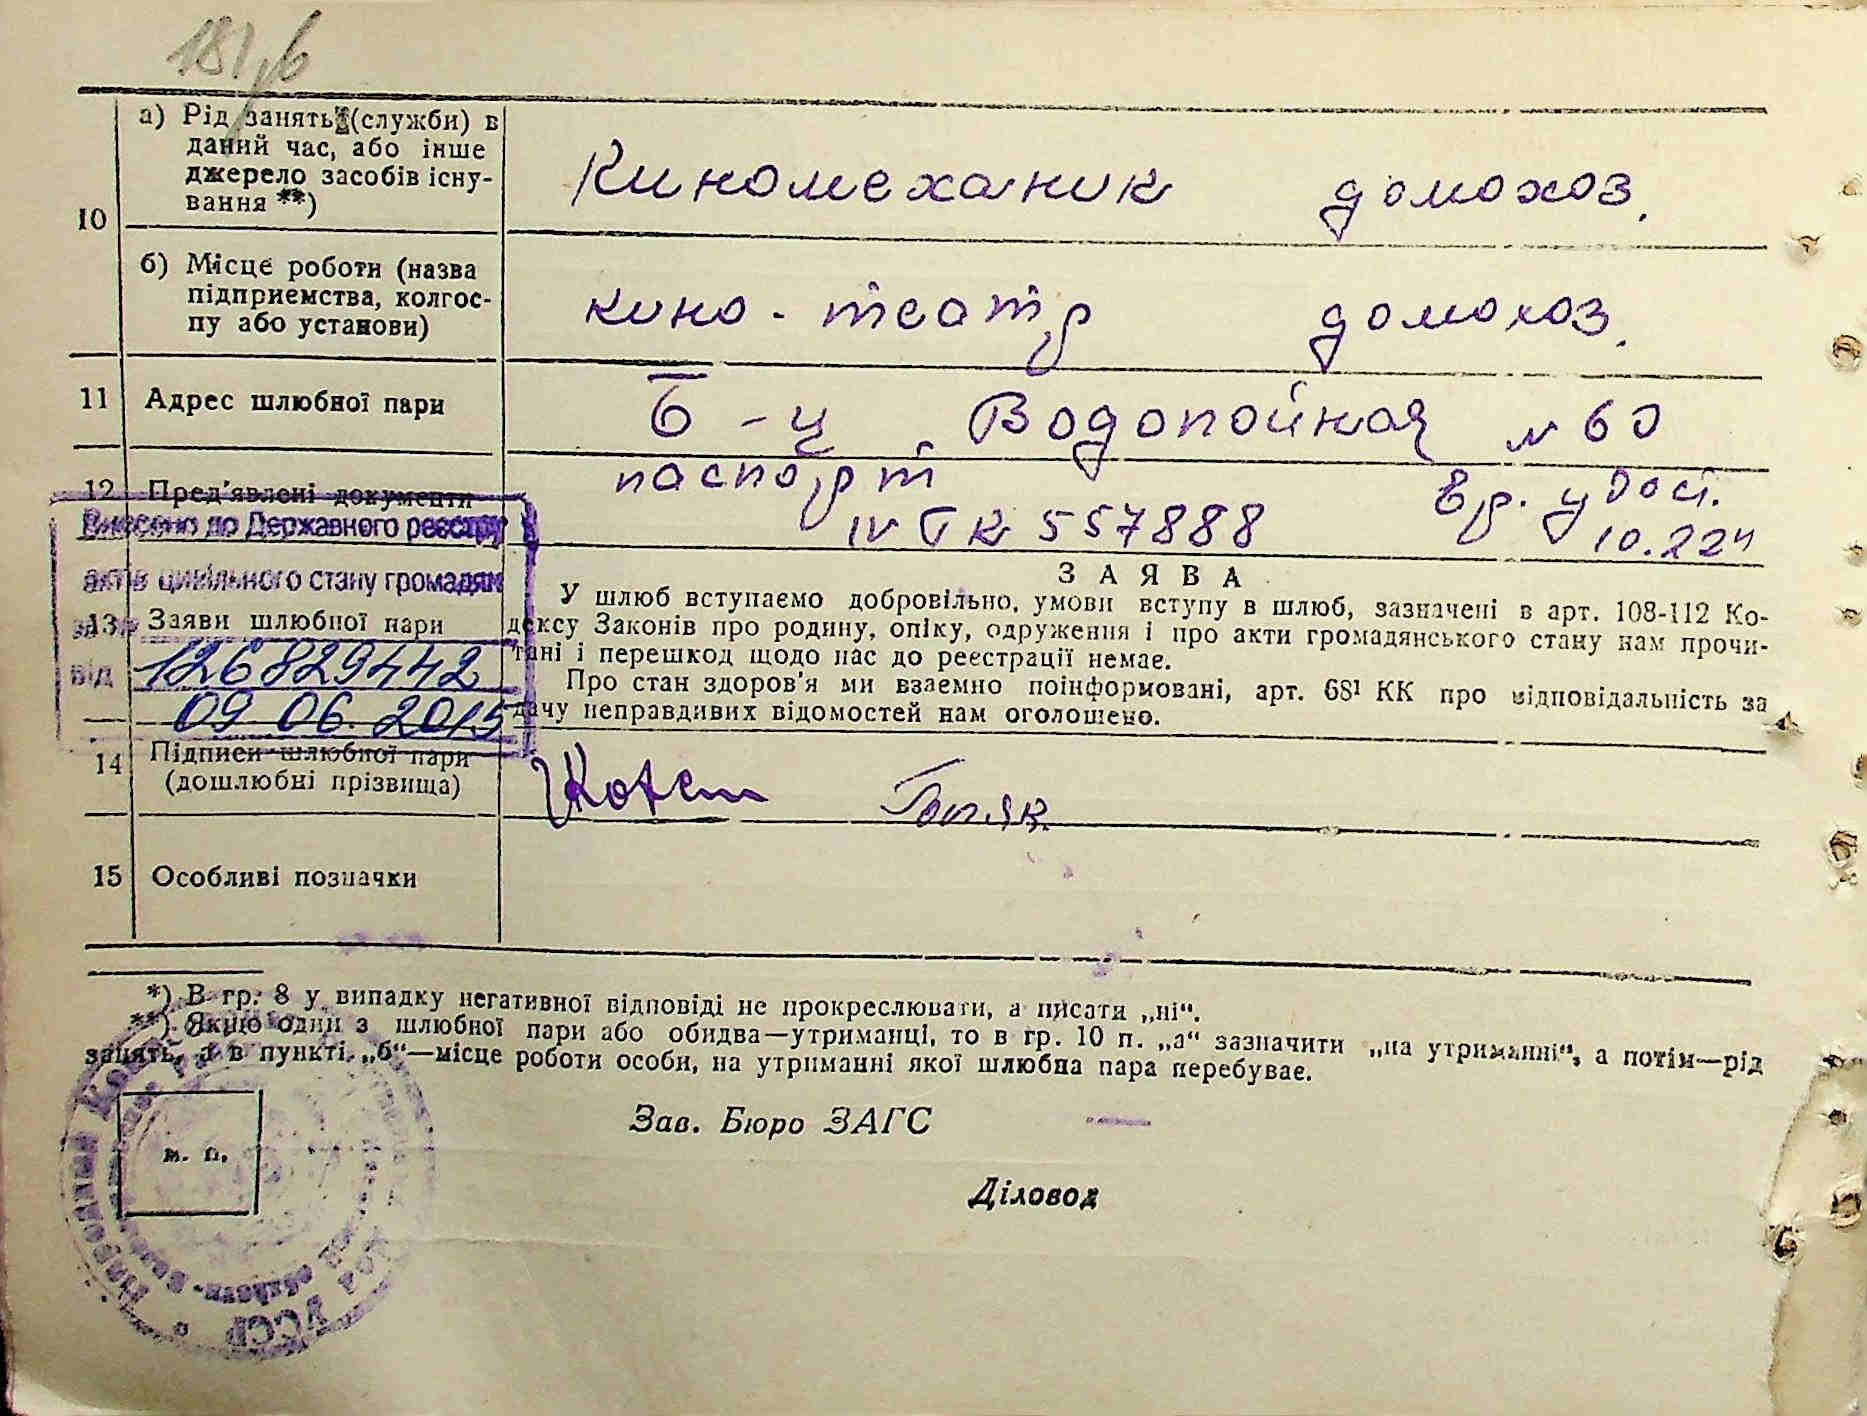 181/б
10
а) Рід занять (служби) в
даний час, або інше
джерело засобів існу-
вання **)
Киномеханик домохоз.
б) Місце роботи (назва
підприємства, колгос-
пу або установи)
кино-театр домохоз.
11 Адрес шлюбної пари
Б-ц. Водопойная № 60
12 Пред'явлені документи
паспорт вр. удост.
IV ТК 557888 10.224
Внесено до Державного реєстру
актів цивільного стану громадян
за №
126829442
від 09 06. 2015
13 Заяви шлюбної пари
ЗАЯВА
У шлюб вступаємо добровільно, умови вступу в шлюб, зазначені в арт. 108-112 Ко-
дексу Законів про родину, опіку, одруження і про акти громадянського стану нам прочи-
тані і перешкод щодо нас до реєстрації немає.
Про стан здоров'я ми взаємно поінформовані, арт. 68¹ КК про відповідальність за
дачу неправдивих відомостей нам оголошено.
14 Підписи шлюбної пари
(дошлюбні прізвища)
15 Особливі позначки
*) В гр. 8 у випадку негативної відповіді не прокреслювати, а писати „ні“.
**) Якщо один з шлюбної пари або обидва—утриманці, то в гр. 10 п. „а“ зазначити „на утриманні“, а потім—рід
занять, а в пункті „б“—місце роботи особи, на утриманні якої шлюбна пара перебуває.
Зав. Бюро ЗАГС
м. п.
Діловод
УССР